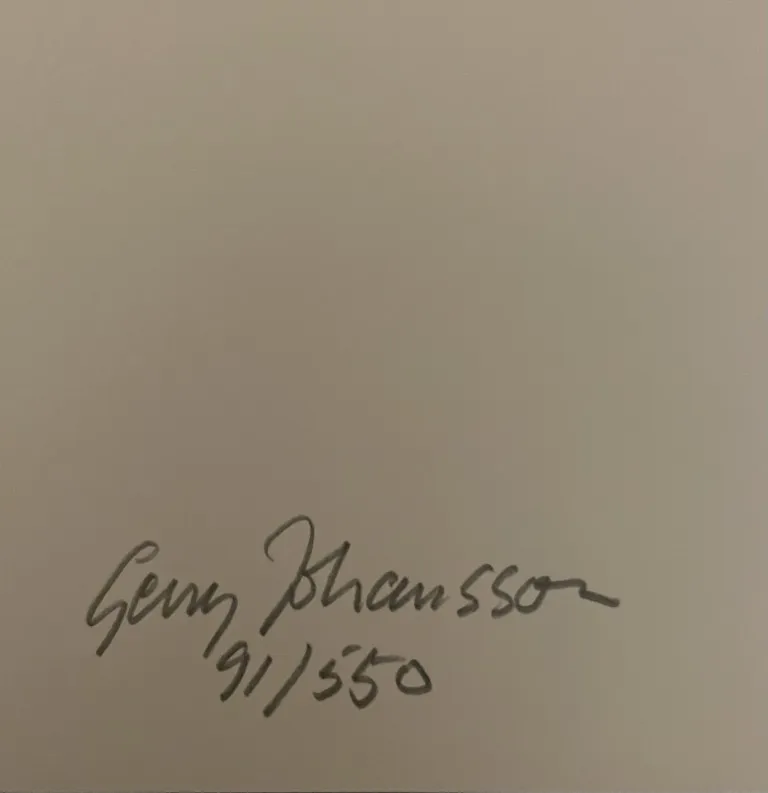 Gerry Johansson
91/550